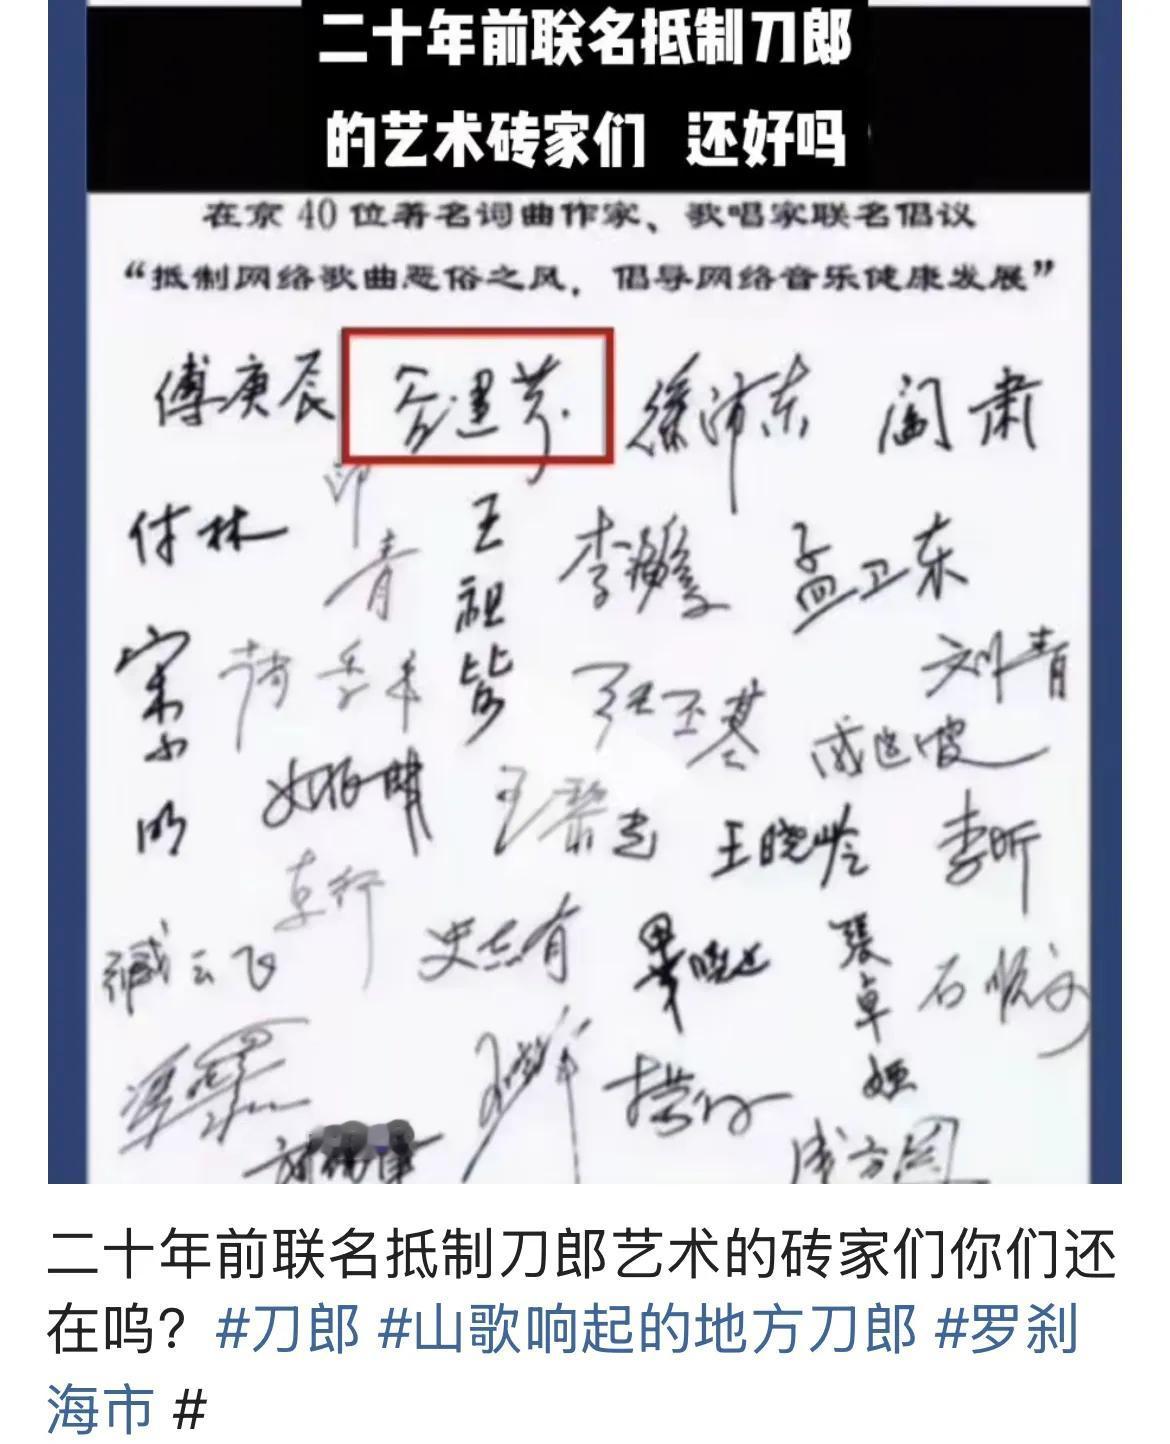 二十年前联名抵制刀郎
的艺术砖家们 还好吗
在京40位著名词曲作家、歌唱家联名倡议
“抵制网络歌曲恶俗之风，倡导网络音乐健康发展”
傅庚辰 谷建芬 徐沛东 阎肃
付林 印青 王祖皆 李海鹰 孟卫东
宋小明 张丕基 戚建波 刘青
姚明 王黎光 王晓岭 李昕
臧云飞 卞留念 史志有 栗晓
张卓娅 石顺义
成方圆
二十年前联名抵制刀郎艺术的砖家们你们还
在吗？#刀郎 #山歌响起的地方刀郎 #罗刹
海市 #